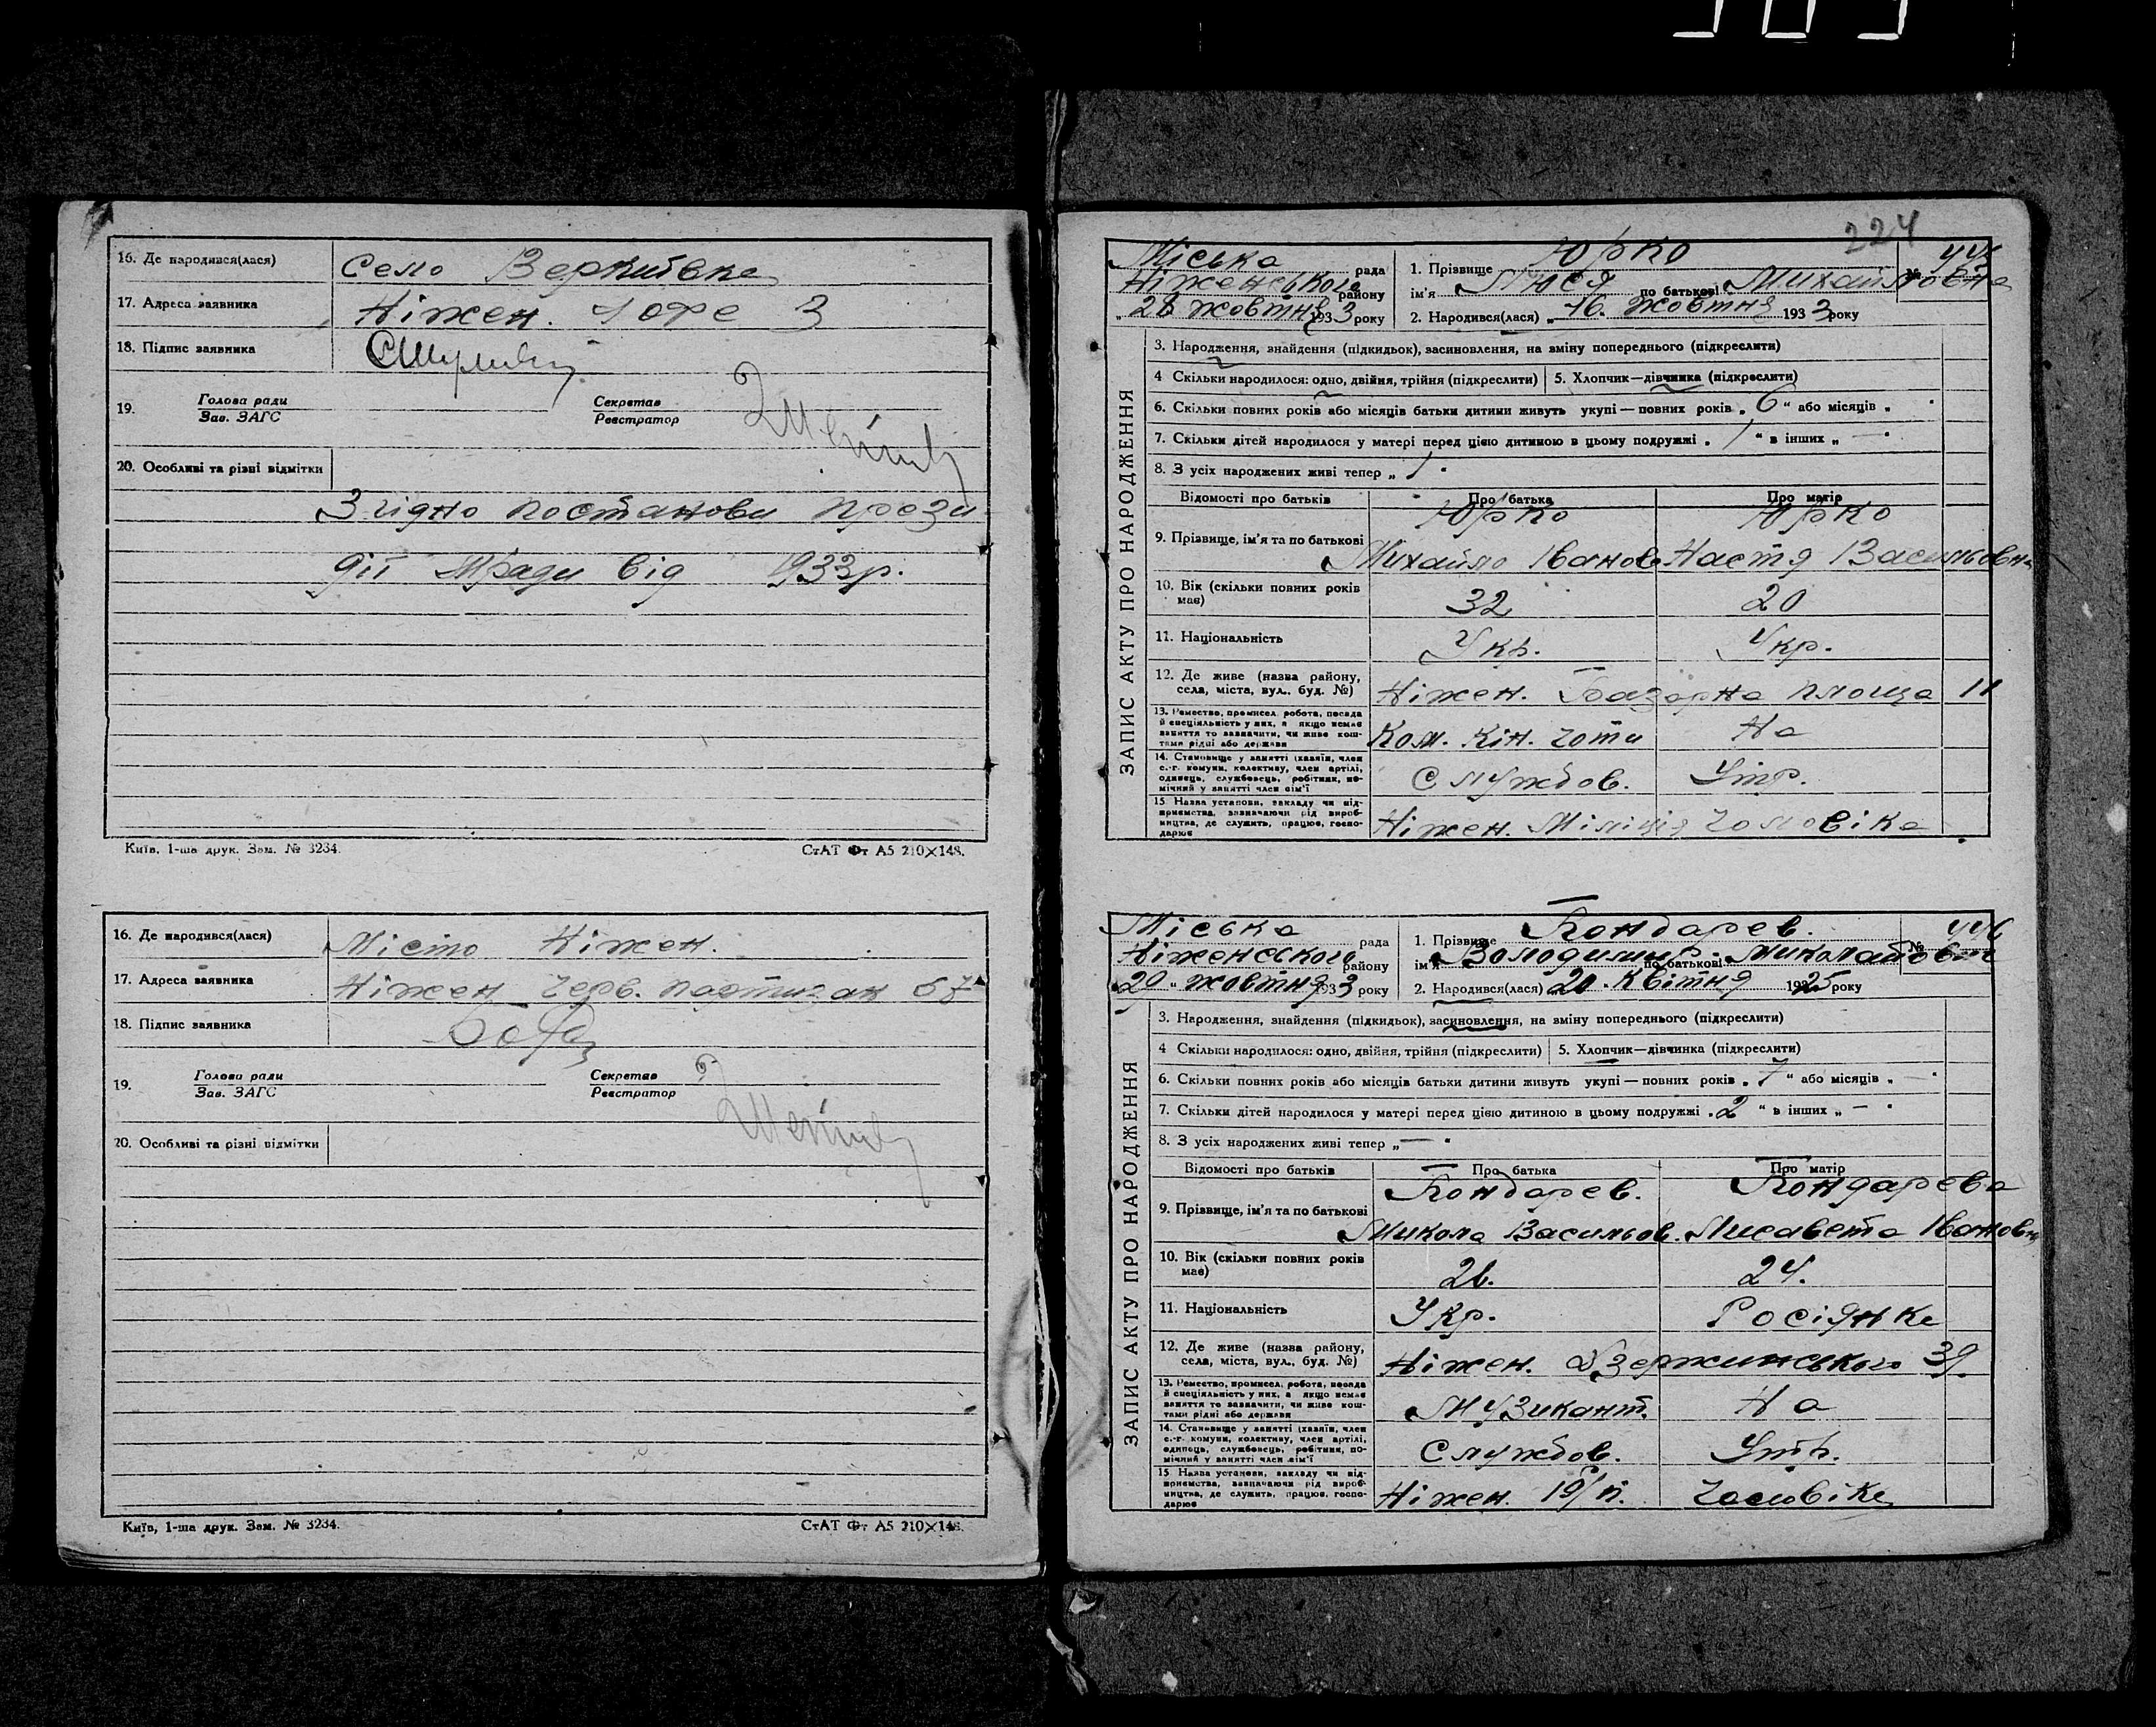 16. Де народився(лася) Село Вертіївка
17. Адреса заявника Ніжен. 3
18. Підпис заявника
19. Голова ради Секретар
Зав. ЗАГС Реєстратор
20. Особливі та різні відмітки
Згідно постанови прези
дії М/ради від 1933р.
Київ, 1-ша друк. Зам. № 3234.
СтАТ Фт А5 210×148.
16. Де народився(лася) Місто Ніжен.
17. Адреса заявника Ніжен Черв. партизан 67
18. Підпис заявника
19. Голова ради Секретар
Зав. ЗАГС Реєстратор
20. Особливі та різні відмітки
Київ, 1-ша друк. Зам. № 3234.
СтАТ Фт А5 210×148.
224
ЗАПИС АКТУ ПРО НАРОДЖЕННЯ
Міська рада
Ніженського району
"28 жовтня 1933 року
1. Прізвище Юрко №
ім'я Люся по батькові Михайловна
2. Народився(лася) „16. жовтня 1933 року
3. Народження, знайдення (підкидьок), засиновлення, на зміну попереднього (підкреслити)
4 Скільки народилося: одно, двійня, трійня (підкреслити) 5. Хлопчик—дівчинка (підкреслити)
6. Скільки повних років або місяців батьки дитини живуть укупі—повних років „ 6 " або місяців „
7. Скільки дітей народилося у матері перед цією дитиною в цьому подружжі „ 1 " в інших „ —
8. З усіх народжених живі тепер „ 1
Відомості про батьків Про батька Про матір
9. Прізвище, ім'я та по батькові Юрко Юрко
Михайло Іванов. Настя Васильовна
10. Вік (скільки повних років має) 32 20
11. Національність Укр. Укр.
12. Де живе (назва району, села, міста, вул., буд. №) Ніжен. Базарна площа 11
13. Ремество, промисел, робота, посада й спеціяльність у них, а якщо немає заняття то зазначити, чи живе коштами рідні або держави Ком. Кін. чоти На
14. Становище у занятті (хазяїн, член с.-г. комуни, колективу, член артілі, одинець, службовець, робітник, помічний у занятті член сім'ї Службов. Утр.
15 Назва установи, закладу чи підприємства, зазначаючи рід виробництва, де служить, працює, господарює Ніжен. Міліція Чоловіка
ЗАПИС АКТУ ПРО НАРОДЖЕННЯ
Міська рада
Ніженського району
"29 " жовтня 1933 року
1. Прізвище Бондарев. № 446
ім'я Володимир по батькові Миколайович
2. Народився(лася) „20. Квітня 1925 року
3. Народження, знайдення (підкидьок), засиновлення, на зміну попереднього (підкреслити)
4 Скільки народилося: одно, двійня, трійня (підкреслити) 5. Хлопчик—дівчинка (підкреслити)
6. Скільки повних років або місяців батьки дитини живуть укупі—повних років „ 7 " або місяців „ —
7. Скільки дітей народилося у матері перед цією дитиною в цьому подружжі „ 2 " в інших „ —
8. З усіх народжених живі тепер „ —
Відомості про батьків Про батька Про матір
9. Прізвище, ім'я та по батькові Бондарев. Бондарева
Микола Васильов. Лисавета Івановн
10. Вік (скільки повних років має) 26. 24.
11. Національність Укр. Росіянка
12. Де живе (назва району, села, міста, вул., буд. №) Ніжен. Дзержинського 39.
13. Ремество, промисел, робота, посада й спеціяльність у них, а якщо немає заняття то зазначити, чи живе коштами рідні або держави Музикант. На
14. Становище у занятті (хазяїн, член с.-г. комуни, колективу, член артілі, одинець, службовець, робітник, помічний у занятті член сім'ї Службов. Утр.
15 Назва установи, закладу чи підприємства, зазначаючи рід виробництва, де служить, працює, господарює Ніжен. 19/п. Чоловіка